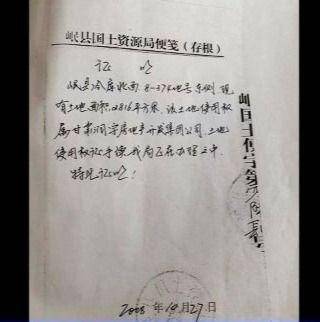 岷县国土资源局便笺（存根）
证 明
岷县冷库北面8-37#地号东侧 现
有土地面积2816平方米，该土地使用权
属甘肃润宇房地产开发集团公司，土地
使用权证手续我局正在办理之中，
特此证明！
2008年10月27日
岷县国土资源